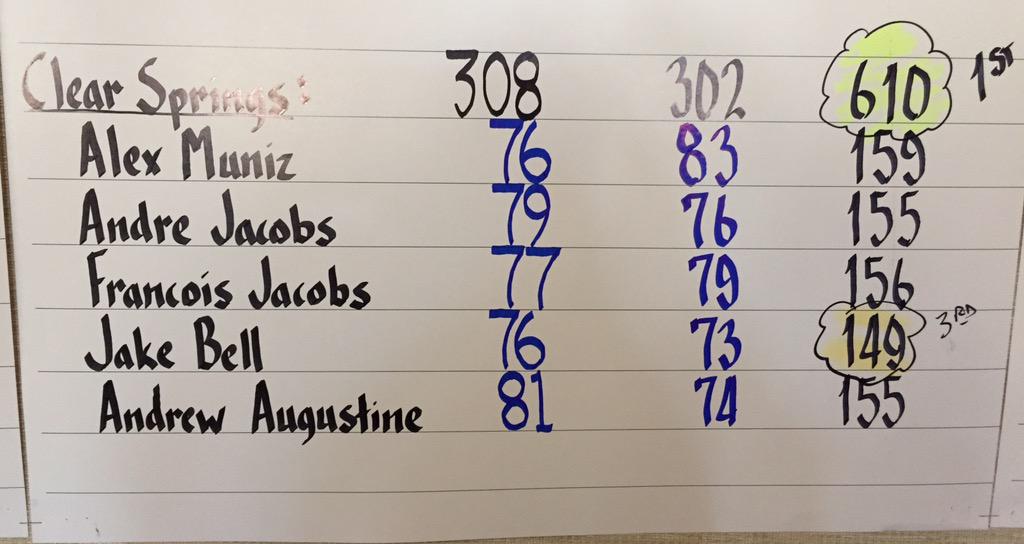 Clear Springs: 308 302 610 1ST
Alex Muniz 76 83 159
Andre Jacobs 79 76 155
Francois Jacobs 77 79 156
Jake Bell 76 73 149 3RD
Andrew Augustine 81 74 155